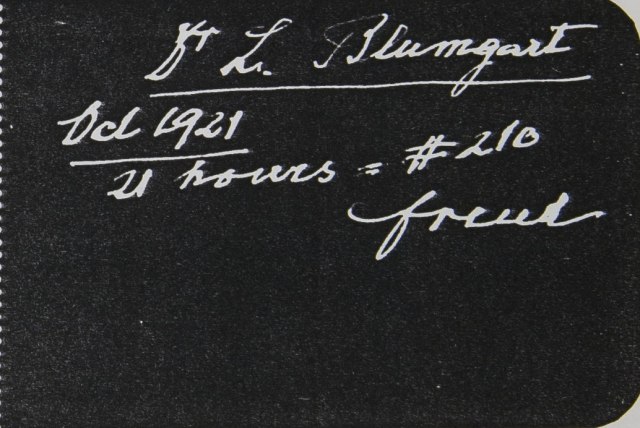 Dr L. Blumgart
Oct 1921
21 hours = #210
freud